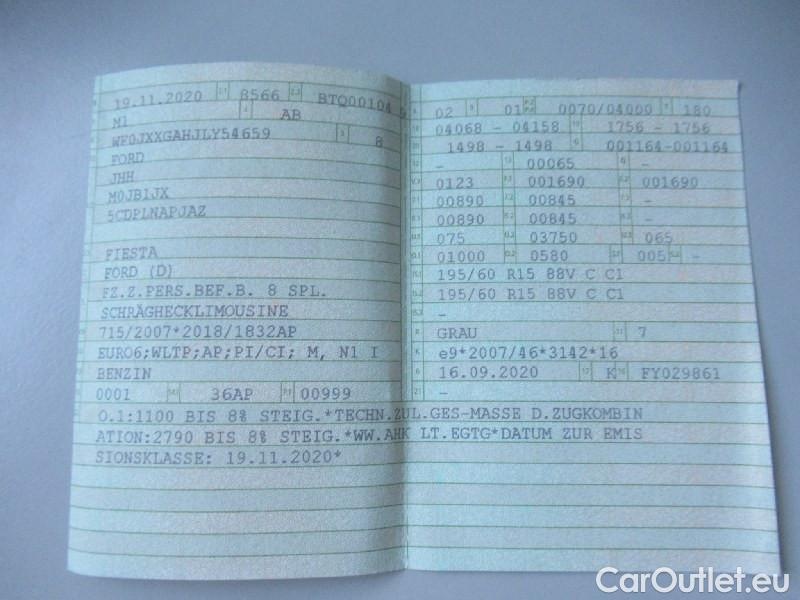 19.11.2020 2.1 8566 2.2 BTQ00104
M1 AB
WF0JXXGAHJLY54659 3 8
FORD
JHH
M0JB1JX
5CDPLNAPJAZ
FIESTA
FORD (D)
FZ.Z.PERS.BEF.B. 8 SPL.
SCHRÄGHECKLIMOUSINE
715/2007*2018/1832AP
EURO6;WLTP;AP;PI/CI; M, N1 I
BENZIN
0001 36AP 00999
02 01 0070/04000 180
04068 - 04158 1756 - 1756
1498 - 1498 001164-001164
- 00065 -
0123 001690 001690
00890 00845 -
00890 00845 -
075 03750 065
01000 0580 005 -
195/60 R15 88V C C1
195/60 R15 88V C C1
-
GRAU 7
e9*2007/46*3142*16
16.09.2020 K FY029861
-
O.1:1100 BIS 8% STEIG.*TECHN.ZUL.GES-MASSE D.ZUGKOMBIN
ATION:2790 BIS 8% STEIG.*WW.AHK LT.EGTG*DATUM ZUR EMIS
SIONSKLASSE: 19.11.2020*
CarOutlet.eu